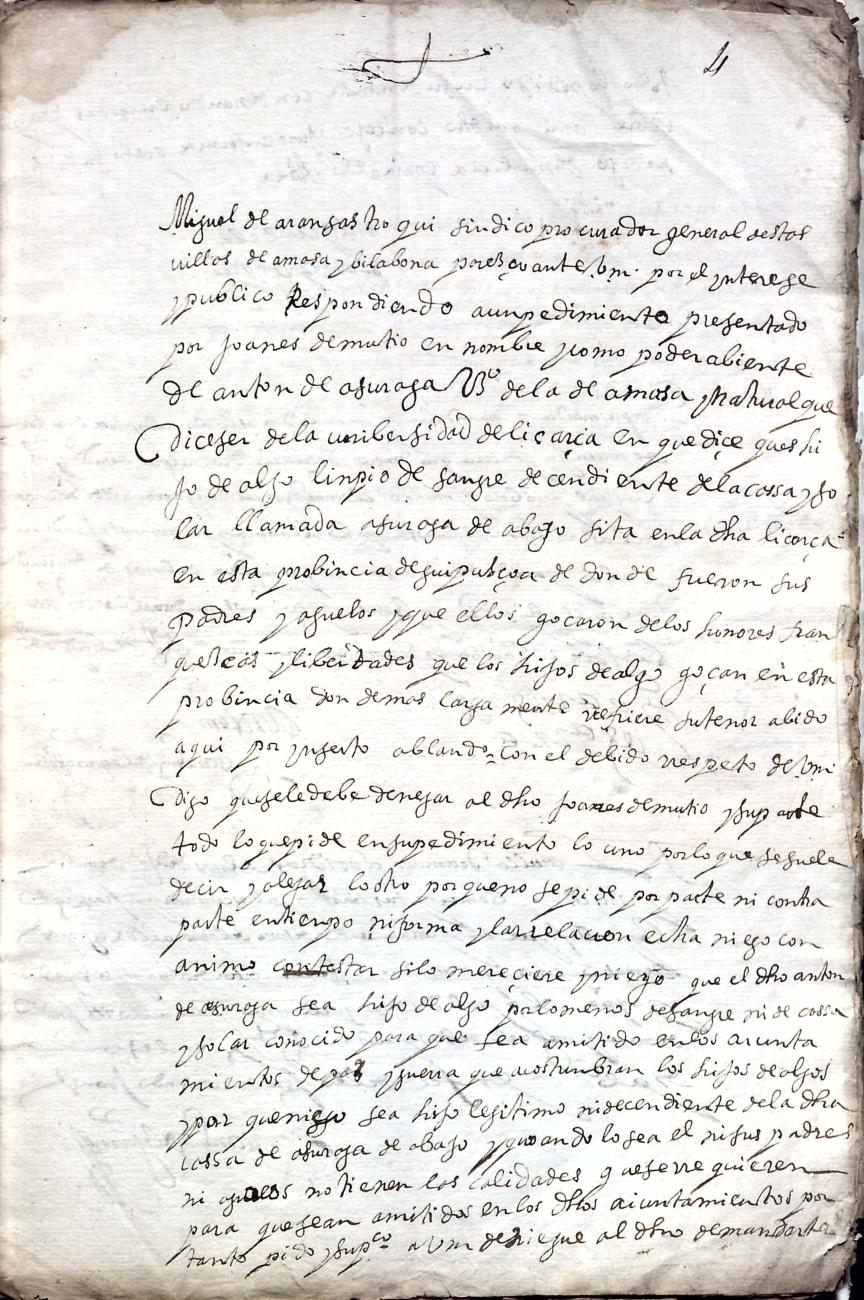 4
Miguel de aransastro qui sindico procurador general destas
villas de amasa y bilabona paresco ante Vm. por el ynterese
y publico Respondiendo a un pedimiento presentado
por Joanes de mutio en nombre y como poder abiente
de anton de asurasa Vº de la de amasa y Natural que
Dice ser de la unibersidad de liçarça En que diçe ques hi
jo de algo linpio de sangre decendiente de la cassa y so
lar llamada asurasa de abajo sita en la dha liçarça
en esta probincia de guipuscoa de donde fueron sus
padres y aguelos y que ellos goçaron de los honores fran
quesas y libertades que los hijos de algo goçan en esta
probincia don de mas larga mente refiere su tenor abido
aqui por ynserto ablando con el debido rrespeto de Vm
Digo que se le debe denegar al dho Joanes de mutio y su parte
todo lo que pide en su pedimiento lo uno por lo que se suele
decir y alegar lo otro por que no se pide por parte ni contra
parte en tienpo ni forma y la rrelacion echa niego con
animo contestar si lo mereçiere y niego que el dho anton
de asurasa sea hijo de algo por lo menos de sangre ni de cassa
y solar conocido para que sea amitido en los aiunta
mientos de paz y guerra que acostunbran los hijos de algos
y por que niego sea hijo legitimo ni decendiente de la dha
cassa de asurasa de abajo y quando lo sea el ni sus padres
ni aguelos no tienen las calidades que se rre quieren
para que sean amitidos en los dhos aiuntamientos por
tanto pido y supco a Vm deniegue al dho demandante